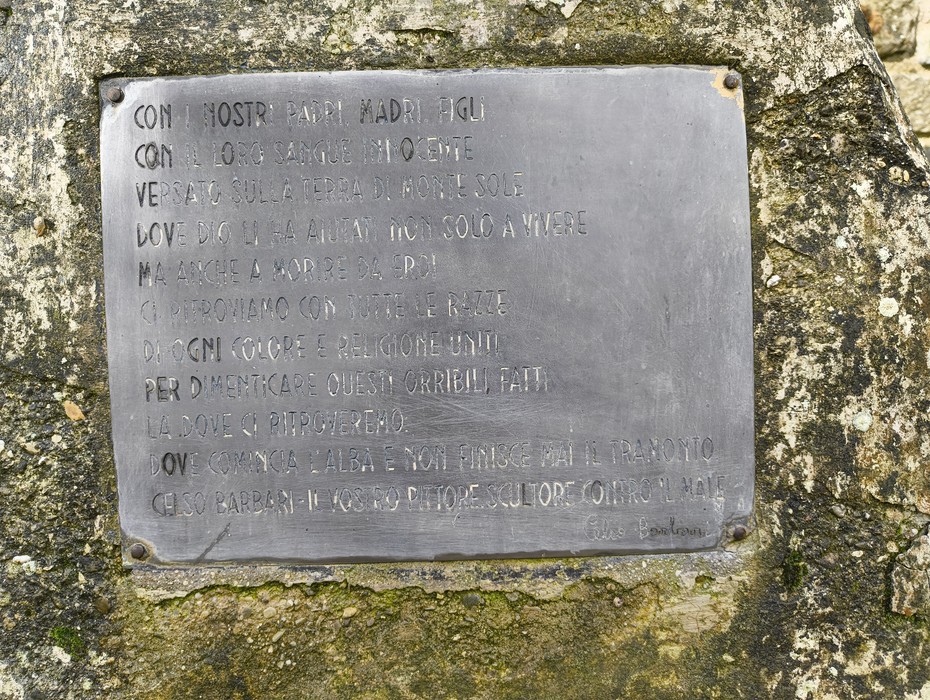 CON I NOSTRI PADRI, MADRI, FIGLI
CON IL LORO SANGUE INNOCENTE
VERSATO SULLA TERRA DI MONTE SOLE
DOVE DIO LI HA AIUTATI NON SOLO A VIVERE
MA ANCHE A MORIRE DA EROI
CI RITROVIAMO CON TUTTE LE RAZZE
DI OGNI COLORE E RELIGIONE UNITI
PER DIMENTICARE QUESTI ORRIBILI FATTI
LA DOVE CI RITROVEREMO.
DOVE COMINCIA L'ALBA E NON FINISCE MAI IL TRAMONTO
CELSO BARBARI - IL VOSTRO PITTORE SCULTORE CONTRO IL MALE
Celso Barbari